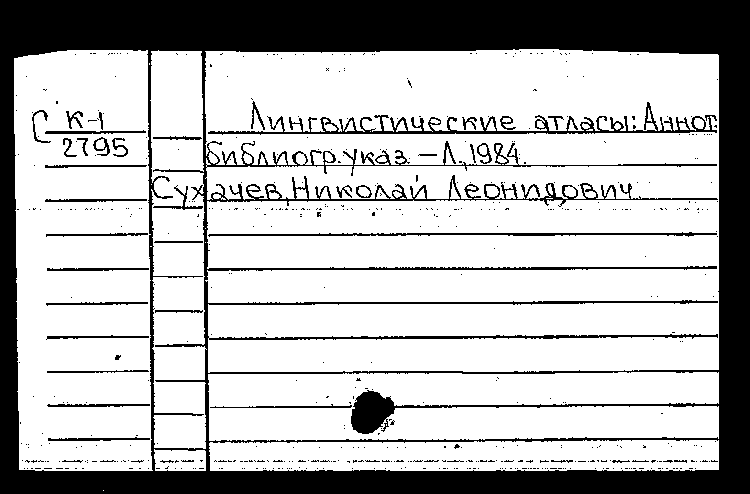 С К-1
2795
Лингвистические атласы: Аннот.
библиогр. указ. – Л., 1984.
Сухачев, Николай Леонидович